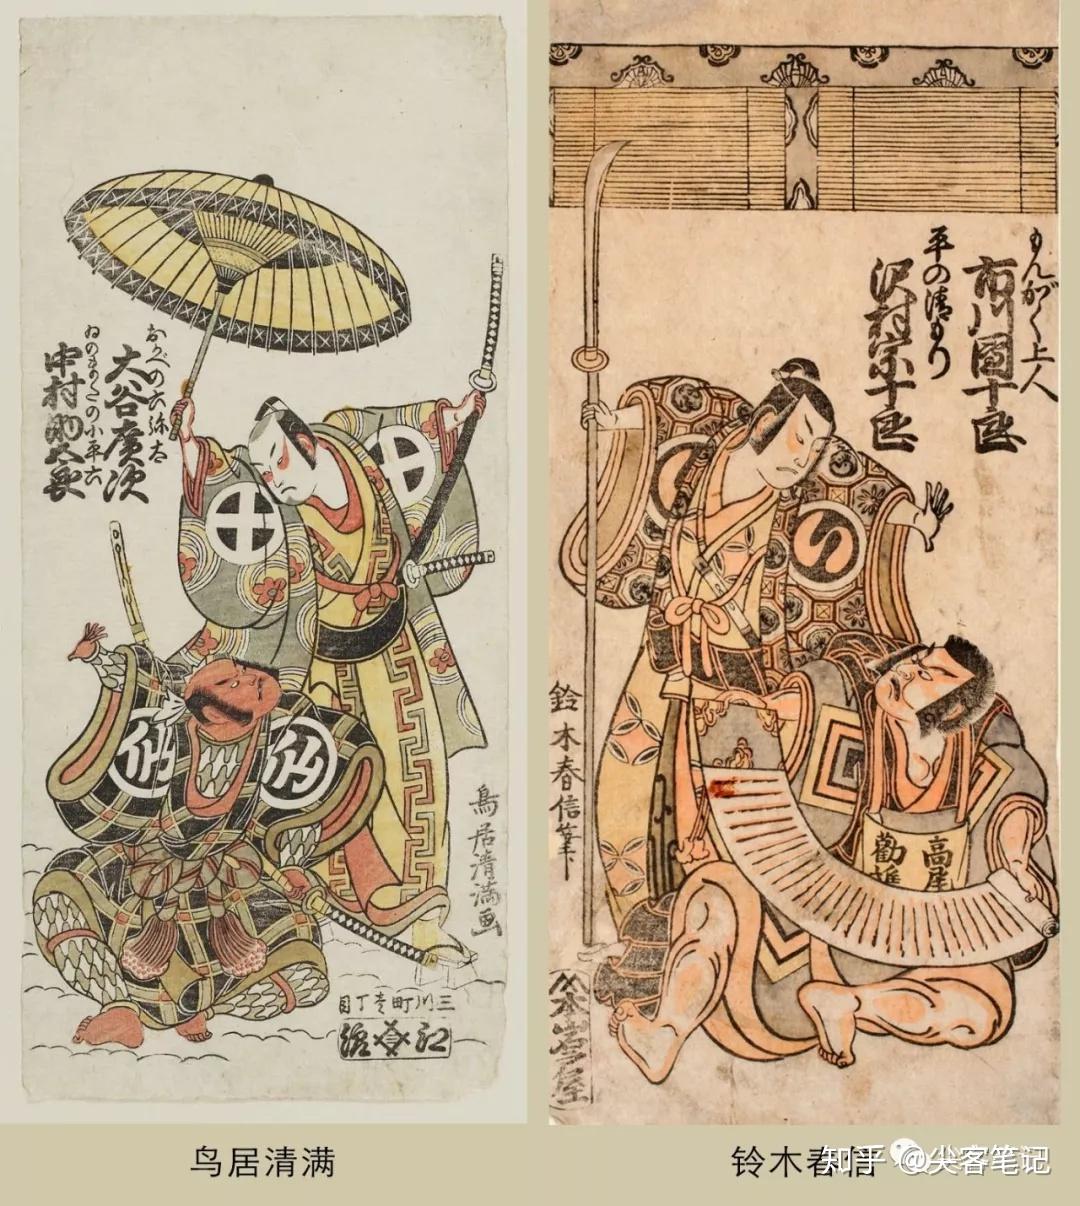 おかべの六弥太
大谷廣次
ゐのまたの小平六
中村助五郎
鳥居清満画
三川町壱丁目
もんがく上人
市川團十郎
平の清もり
沢村宗十郎
鈴木春信筆
高
勧
鸟居清满
铃木春信
知乎 @尖客笔记